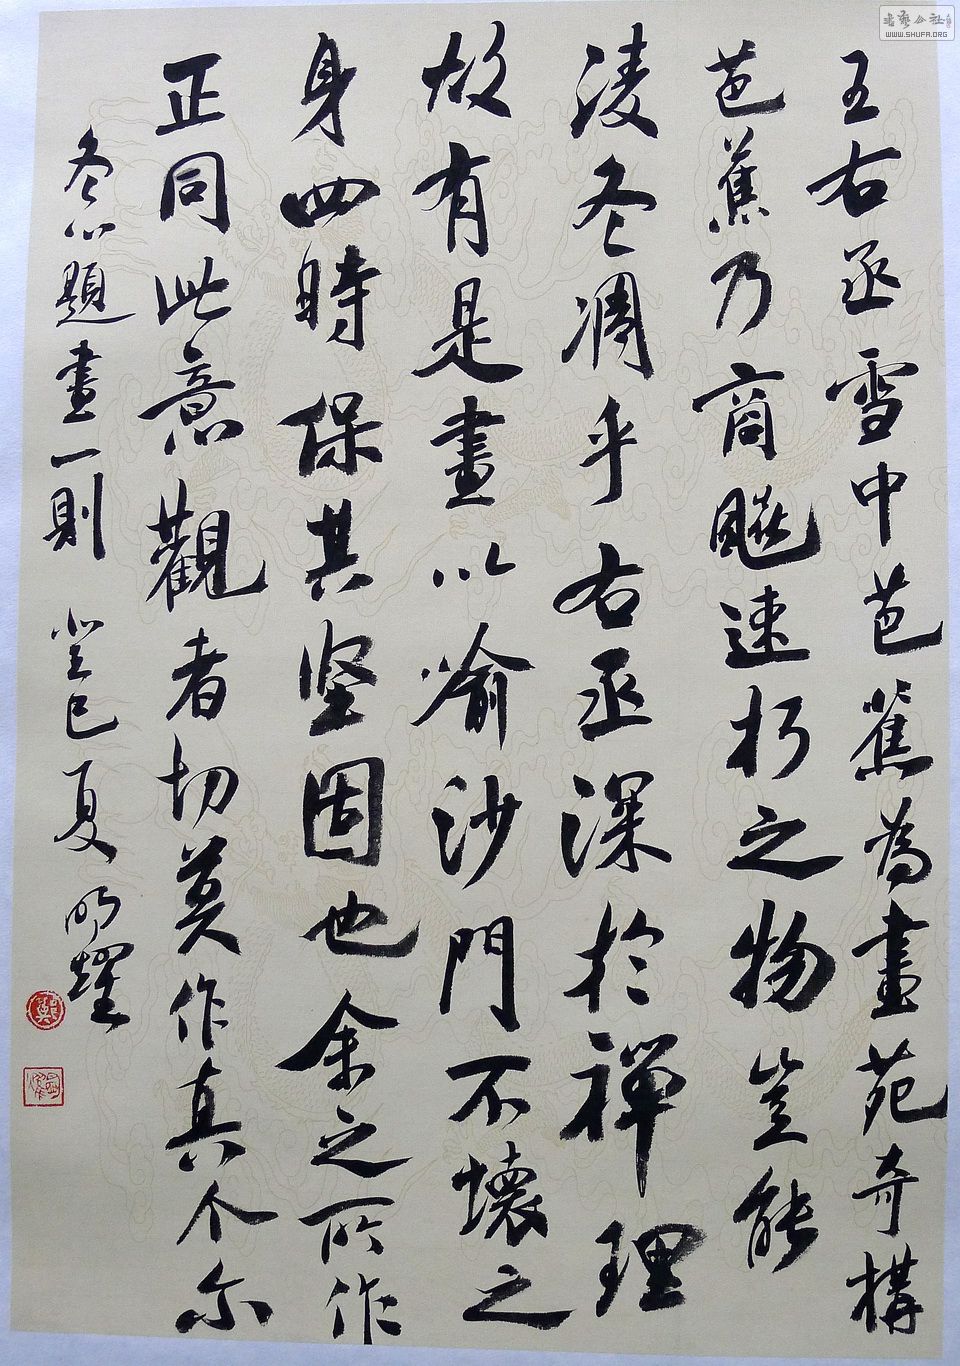 王右丞雪中芭蕉為畫苑奇構
芭蕉乃商飈速朽之物豈能
凌冬凋乎右丞深於禪理
故有是畫以喻沙門不壞之
身四時保其坚固也余之所作
正同此意觀者切莫作真个尔
冬心題畫一則 癸巳夏 明耀
書藝公社
WWW.SHUFA.ORG